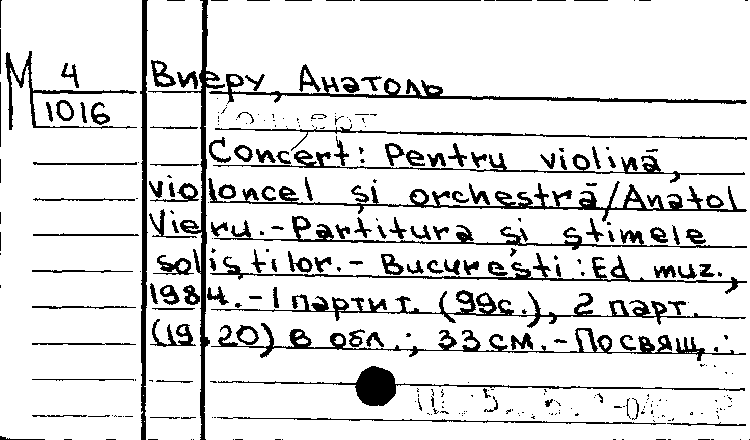 М 4 Виеру, Анатоль
1016 Концерт
Concert: Pentru violină,
violoncel și orchestră/Anatol
Vieru.-Partitura și știmele
soliștilor.- București: Ed. muz.,
1984.-1 партит. (99с.), 2 парт.
(19,20) в обл.; 33 см.-Посвящ.: